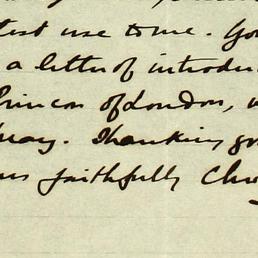 test use to me. You
a letter of introdu
Princon of London, w
may. Thanking yo
us faithfully Ch